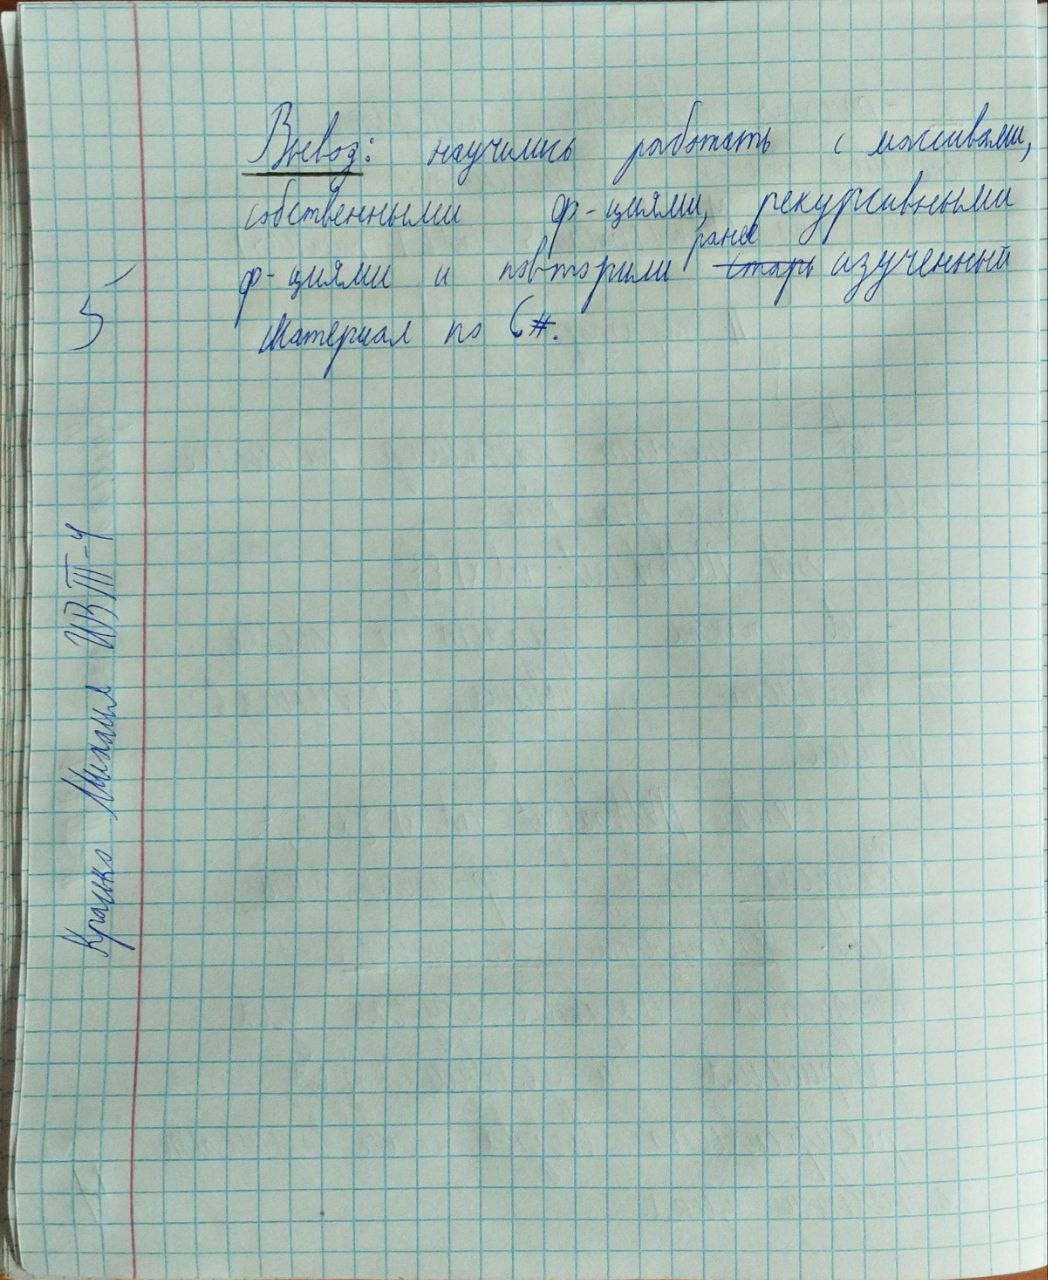 Вывод: научились работать с массивами,
собственными ф-циями, рекурсивными
ф-циями и повторили ранее изученный
материал по C#.
5
Крашко Михаил ИВТ-4